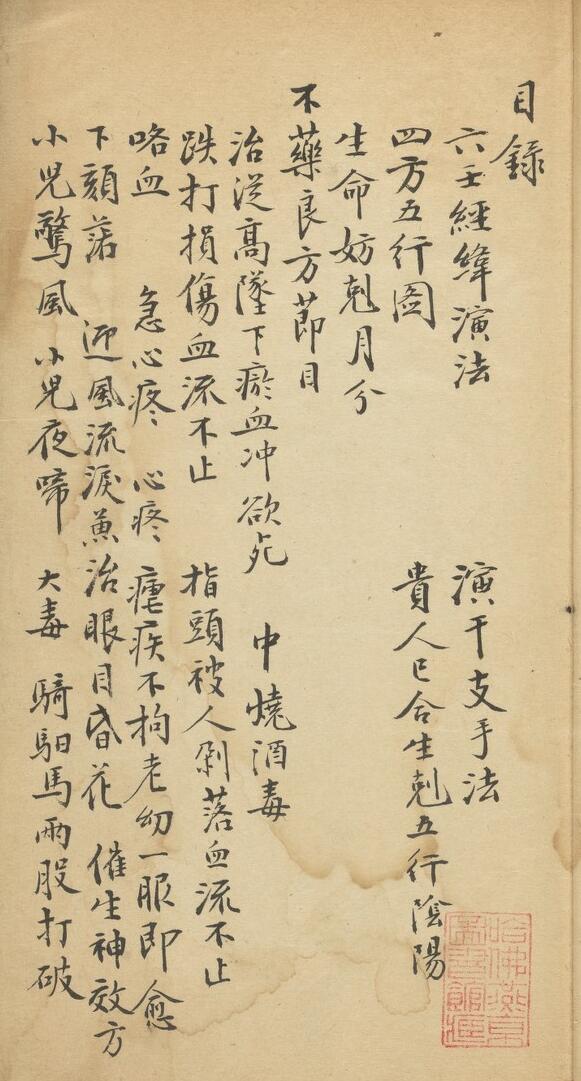 目録
六壬經緯演法 演干支手法
四方五行圖 貴人已合生剋五行陰陽
生命妨剋月分
不藥良方節目
治従髙墜下瘀血冲欲死 中燒酒毒
跌打損傷血流不止 指頭被人剁落血流不止
咯血 急心疼 心疼 瘧疾不拘老幼一服即愈
下頦落 迎風流淚兼治眼目昏花 催生神效方
小兒驚風 小兒夜啼 大毒 騎馬兩股打破
哈佛燕京圖書館藏